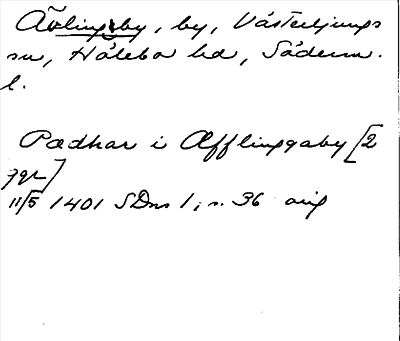 Ävlingeby, by, Västerljungs
sn, Hölebo hd, Söderm.
l.
Pædhar i Æfflingaby [2
ggr]
11/5 1401 SDns 1, s. 36 orig